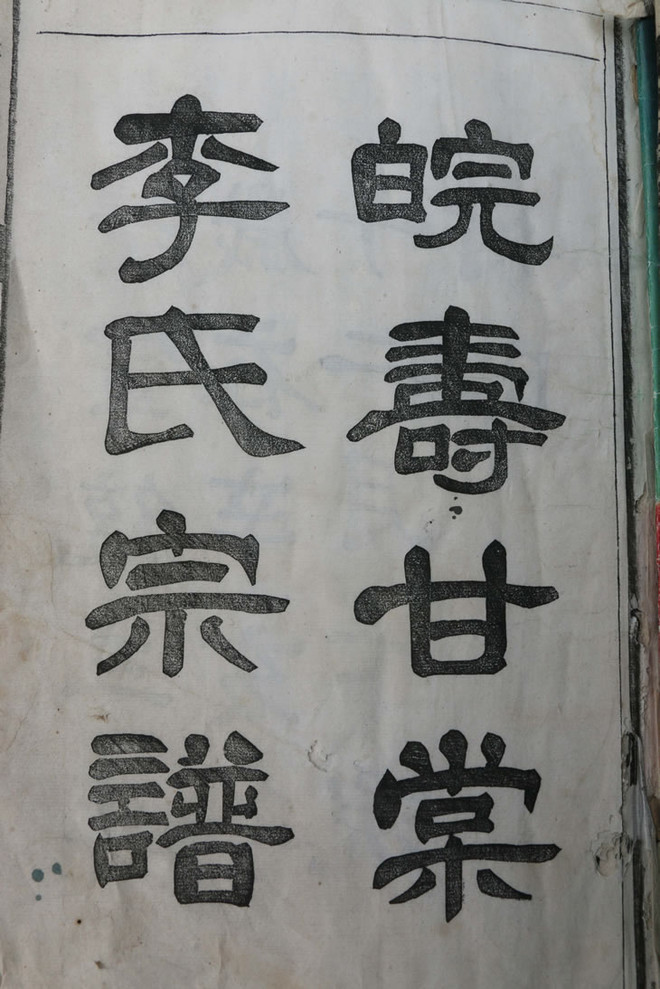 皖壽甘棠
李氏宗譜